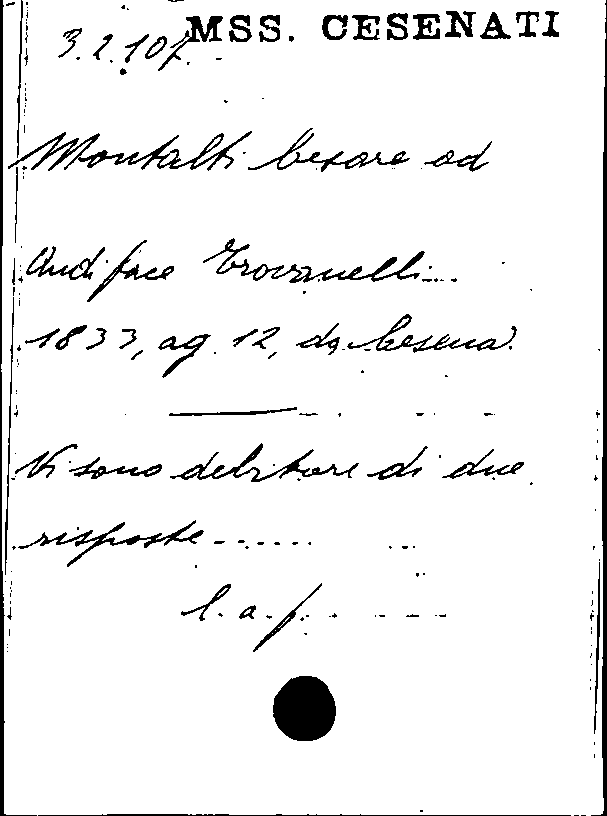 MSS. CESENATI
3.2.107.
Montalti Cesare ad
Audiface Trovanelli...
1833, ag. 12, da Cesena.
Vi sono debitore di due
risposte ......
l. a. f.